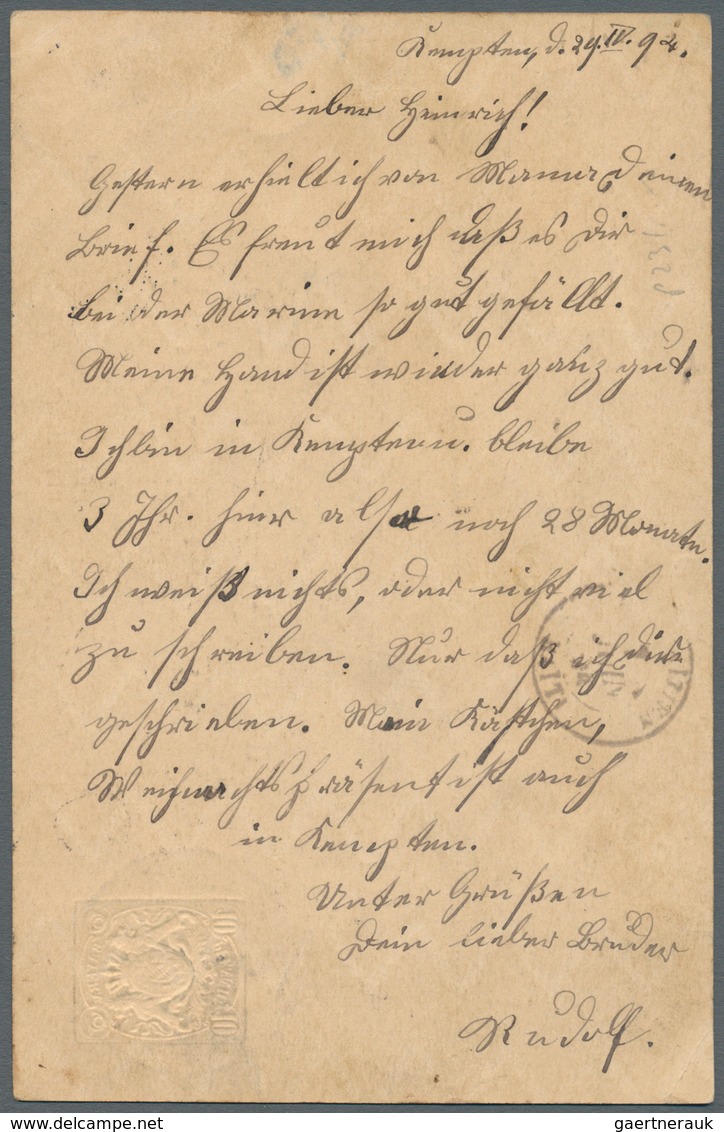 Kempten, d. 29. IV. 94.
Lieber Heinrich!
Gestern erhielt ich von Mama Deinen
Brief. Es freut mich daß es Dir
bei der Marine so gut gefällt.
Meine Hand ist wieder ganz gut.
Ich bin in Kempten u. bleibe
3 Jhr. hier also noch 28 Monate.
Ich weiß nichts, oder nicht viel
zu schreiben. Nur daß ich dir
geschrieben. Mein Kästchen,
Weihnachtspräsent ist auch
in Kempten.
Unter Grüßen
Dein lieber Bruder
Rudolf.
delcampe.net
gaertnerauk